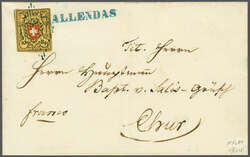 ALLENDAS
Tit. Herrn
Herrn Hauptmann
Bapt. v. Salis-
franco
Chur